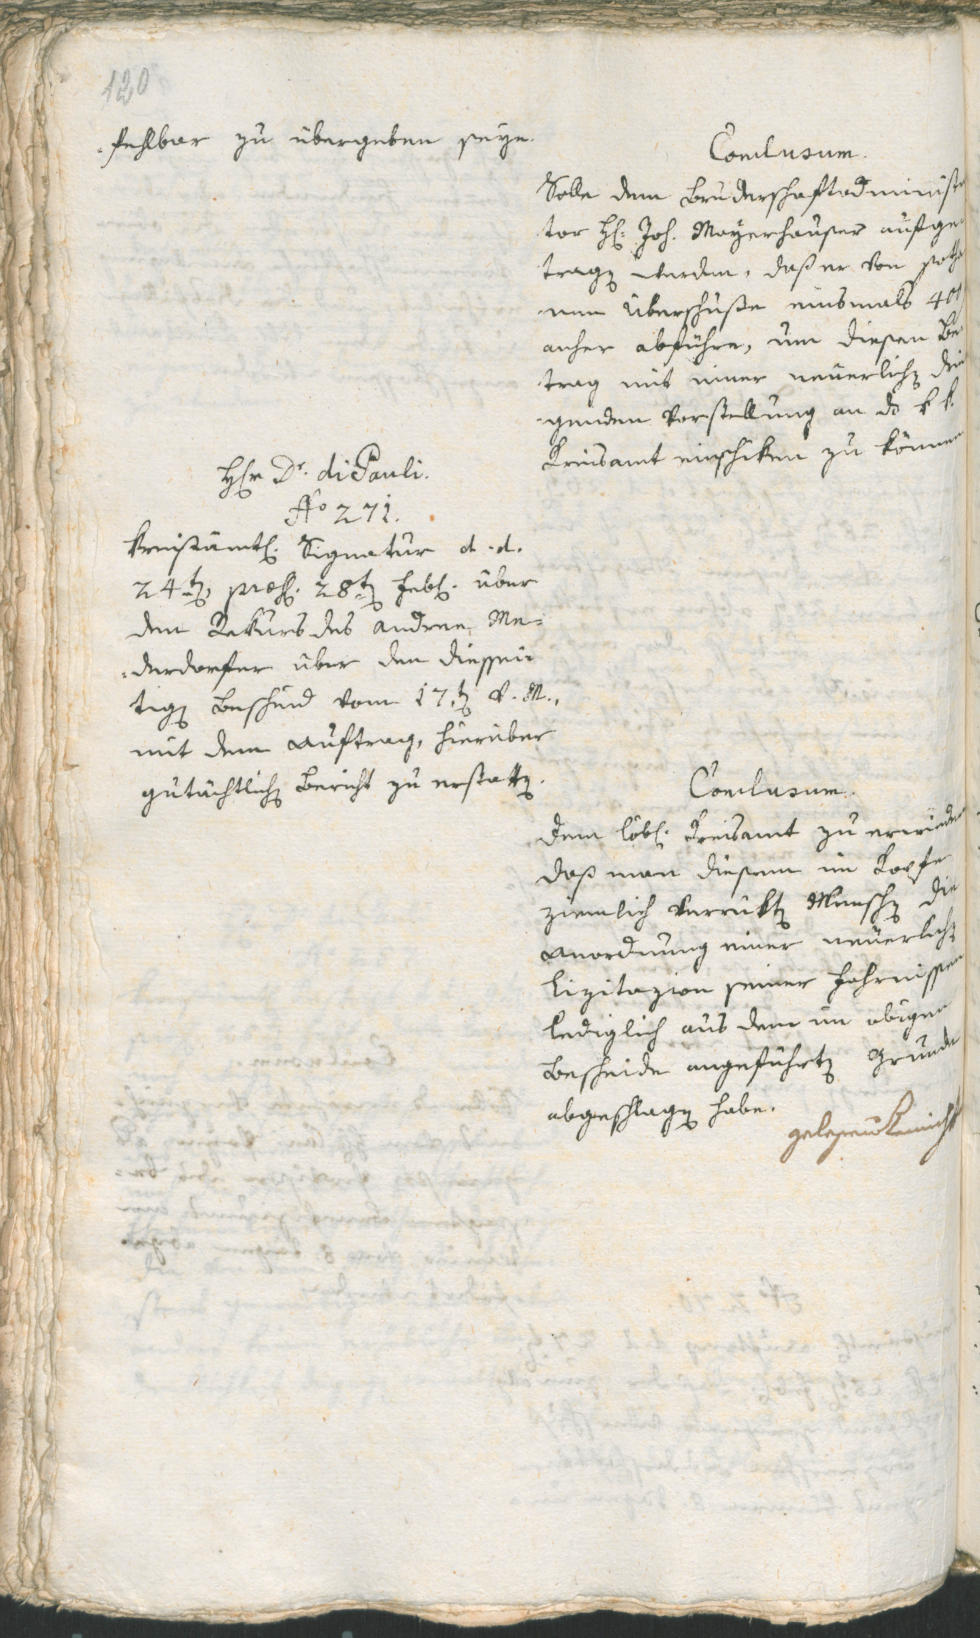 120
-fehlbar zu übergeben seye.
Conclusum.
Solle dem Bruderschaftsadministra
tor H: Joh. Mayerhauser aufge
tragen werden, daß er von
nem Überschuße einsmals 40f
anher abführe, um diesen Be
trag mit einer neuerlichen drin
genden Vorstellung an ds k k
Kreisamt einschiken zu können
Hr Dr. di Pauli.
No 271.
Kreisämtl. Signatur d. d.
24ten, præs. 28ten Febr. über
den Rekurs des Andree Me=
=derdorfer über den dießei
tigen Bescheid vom 17ten v. M.,
mit dem Auftrag, hierüber
gutächtlichen Bericht zu erstatten.
Conclusum.
Dem löbl. Kreisamt zu erwiedern
daß man diesem im Kopfe
ziemlich verrükten Menschen die
Anordnung einer neuerlichen
Lizitazion seiner Fahrnissen
lediglich aus dem im obigen
Bescheide angeführten Grunde
abgeschlagen habe.
gelesen